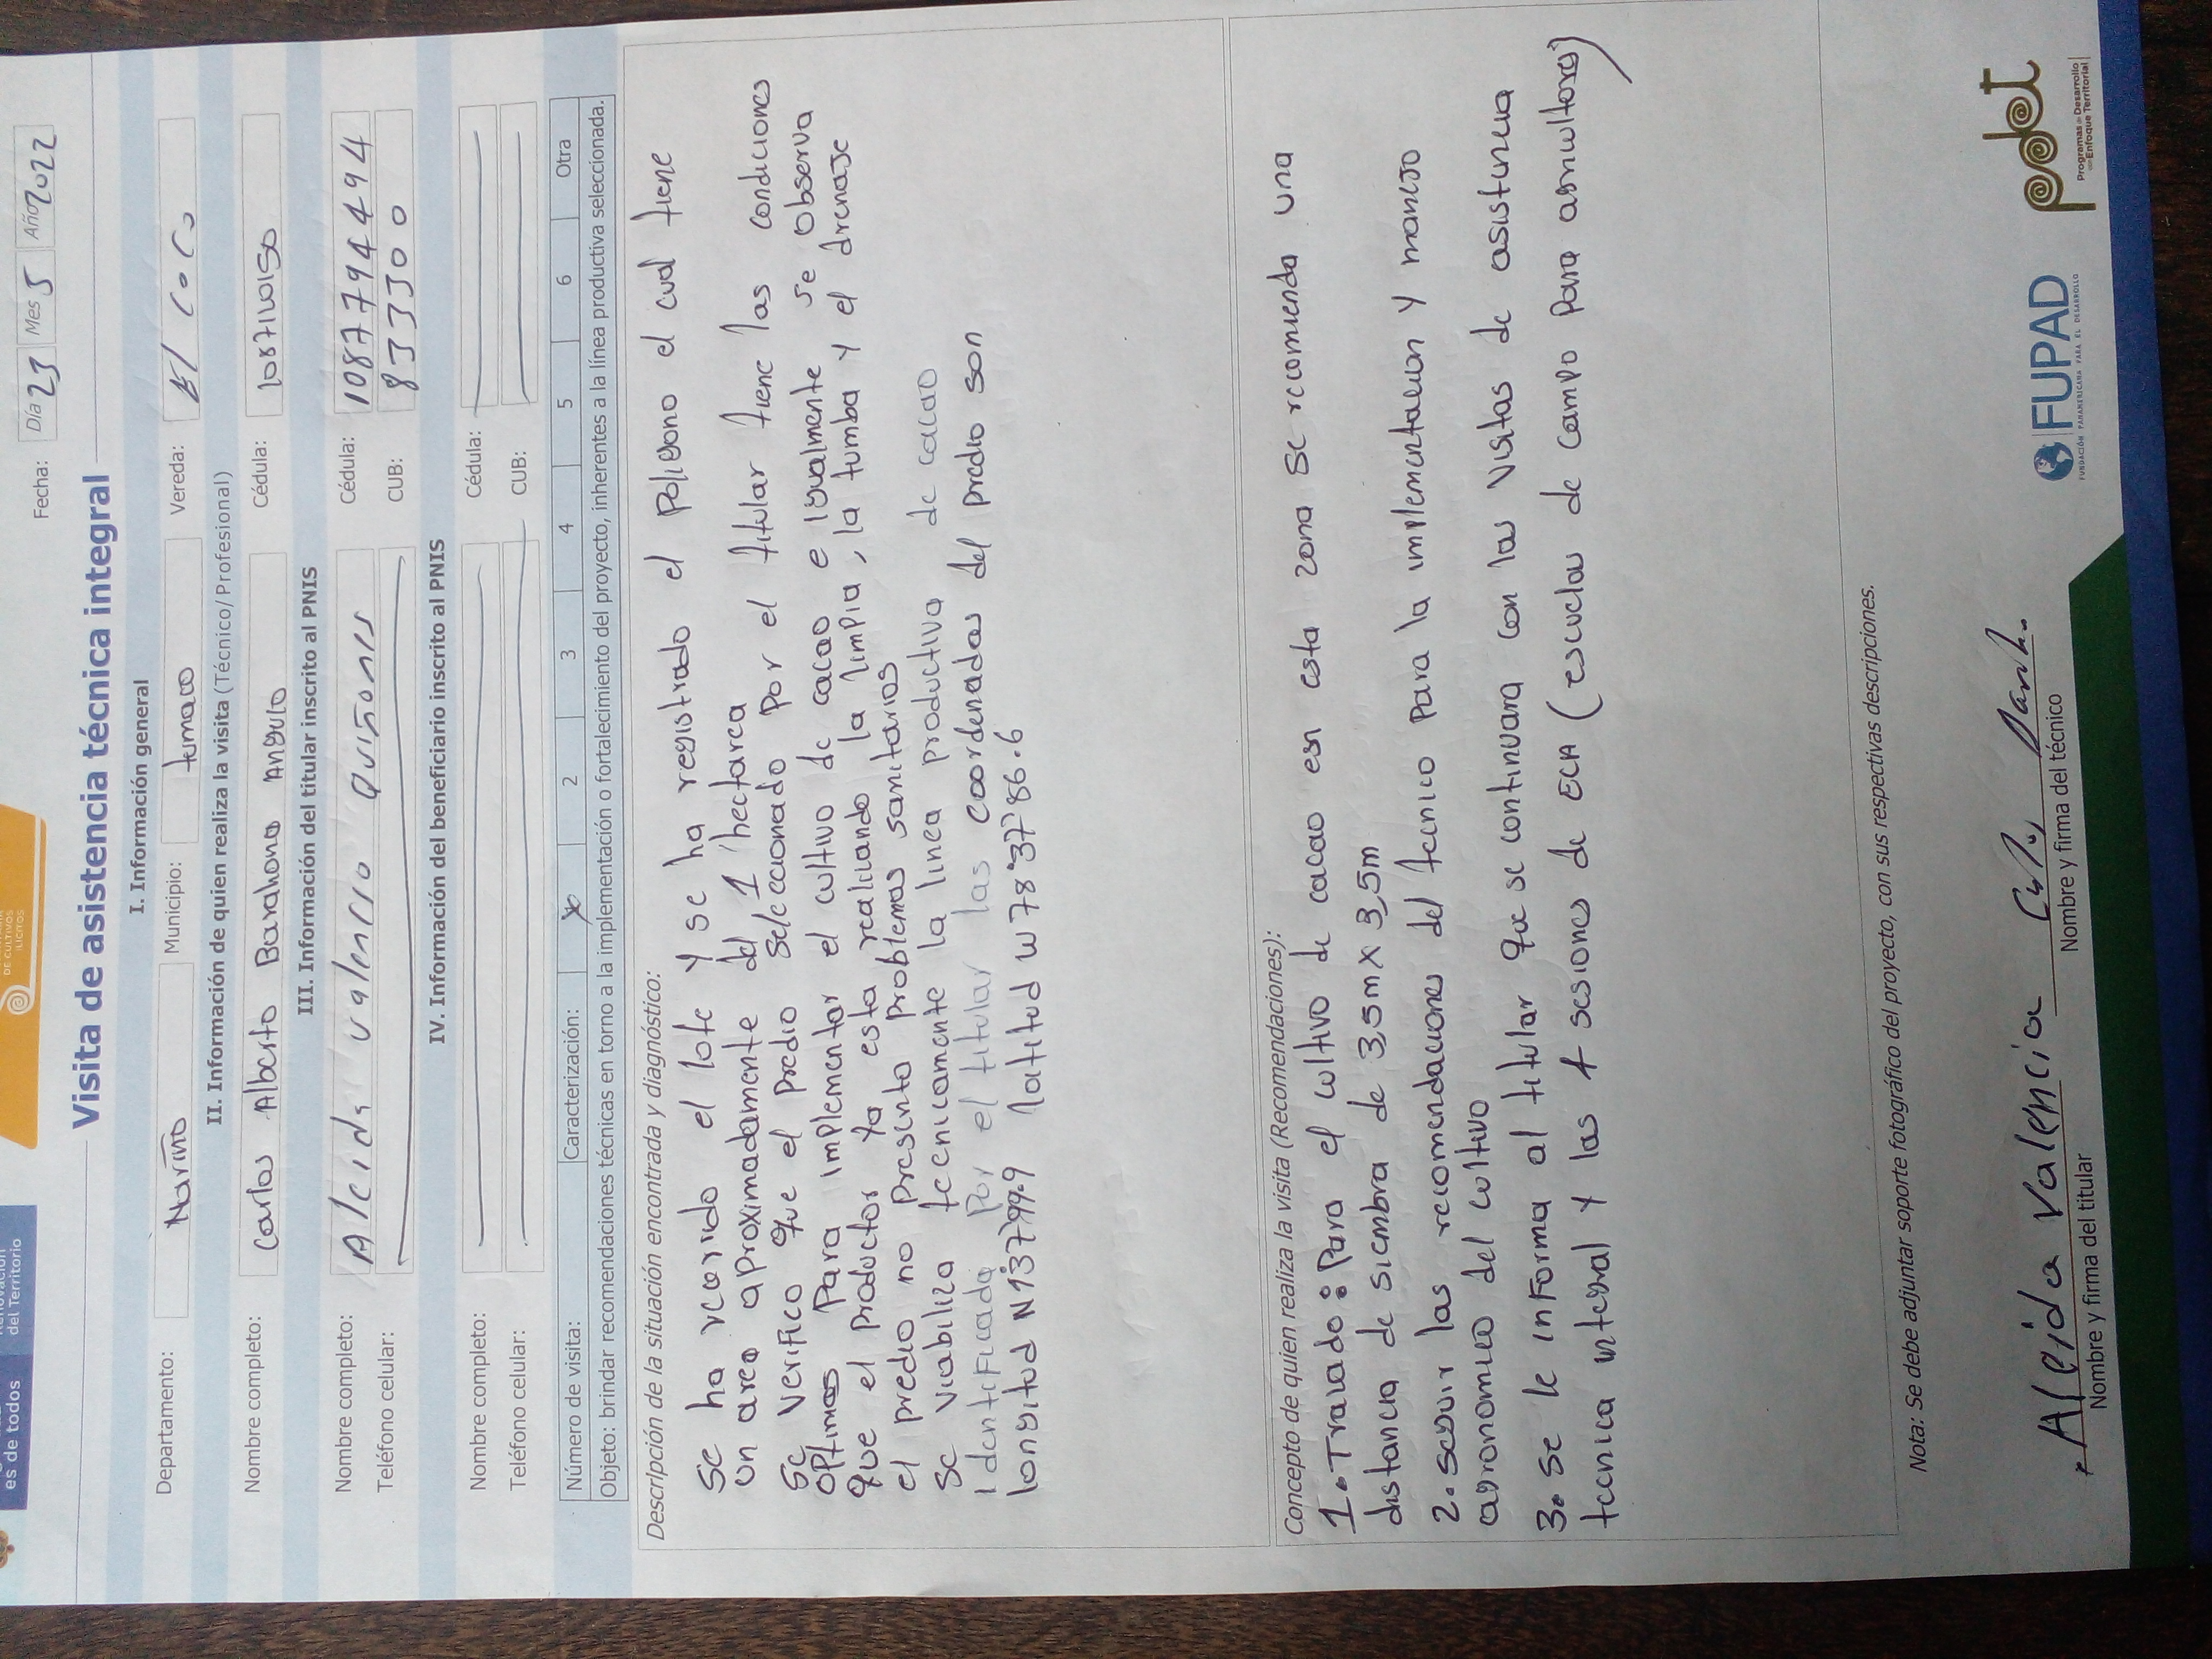 DE CULTIVOS
ILÍCITOS
es de todos
del Territorio
Fecha: Día 23 Mes 5 Año 2022
Visita de asistencia técnica integral
I. Información general
Departamento: Nariño Municipio: tumaco Vereda: El Coco
II. Información de quien realiza la visita (Técnico/Profesional)
Nombre completo: Carlos Alberto Barahona Angulo Cédula:
III. Información del titular inscrito al PNIS
Nombre completo: Aleida valencia quiñones Cédula: 1087794494
Teléfono celular: CUB: 83300
IV. Información del beneficiario inscrito al PNIS
Nombre completo: Cédula:
Teléfono celular: CUB:
Número de visita: Caracterización: X 2 3 4 5 6 Otra
Objeto: brindar recomendaciones técnicas en torno a la implementación o fortalecimiento del proyecto, inherentes a la línea productiva seleccionada.
Descripción de la situación encontrada y diagnóstico:
Se ha recorrido el lote y se ha registrado el Poligono el cual tiene
un area aproximadamente del 1 hectarea
Se verifico que el Predio Seleccionado por el titular tiene las condiciones
optimas Para implementar el cultivo de cacao e igualmente se observa
que el productor ya esta realizando la limpia, la tumba y el drenaje
el predio no Presento problemas sanitarios
Se viabiliza tecnicamente la linea productiva de cacao
identificada por el titular las coordenadas del predio son
longitud N1°37'99.9 latitud w78°37'86.6
Concepto de quien realiza la visita (Recomendaciones):
1. Trazado: Para el cultivo de cacao en esta zona se recomienda una
distancia de siembra de 3,5m x 3,5m
2. seguir las recomendaciones del tecnico para la implementacion y manejo
agronomico del cultivo
3. Se le informa al titular que se continuara con las visitas de asistencia
tecnica integral y las 4 sesiones de ECA (escuelas de campo para agricultores)
Nota: Se debe adjuntar soporte fotográfico del proyecto, con sus respectivas descripciones.
Aleida valencia
Nombre y firma del titular
Nombre y firma del técnico
FUPAD
FUNDACIÓN PANAMERICANA PARA EL DESARROLLO
pdet
Programas de Desarrollo
con Enfoque Territorial